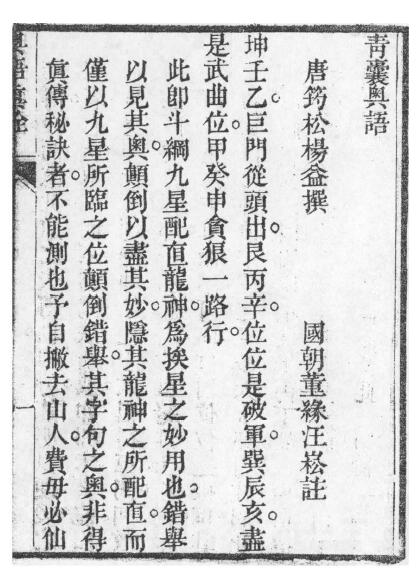 青囊奧語
唐筠松楊益撰　國朝董緣汪崧註
坤壬乙巨門從頭出艮丙辛位位是破軍巽辰亥盡
是武曲位甲癸申貪狼一路行
此卽斗綱九星配直龍神爲挨星之妙用也錯舉
以見其奧顚倒以盡其妙隱其龍神之所配直而
僅以九星所臨之位顚倒錯舉其字句之奧非得
眞傳秘訣者不能測也予自撇去山人費毋必仙
奧語眞詮
一